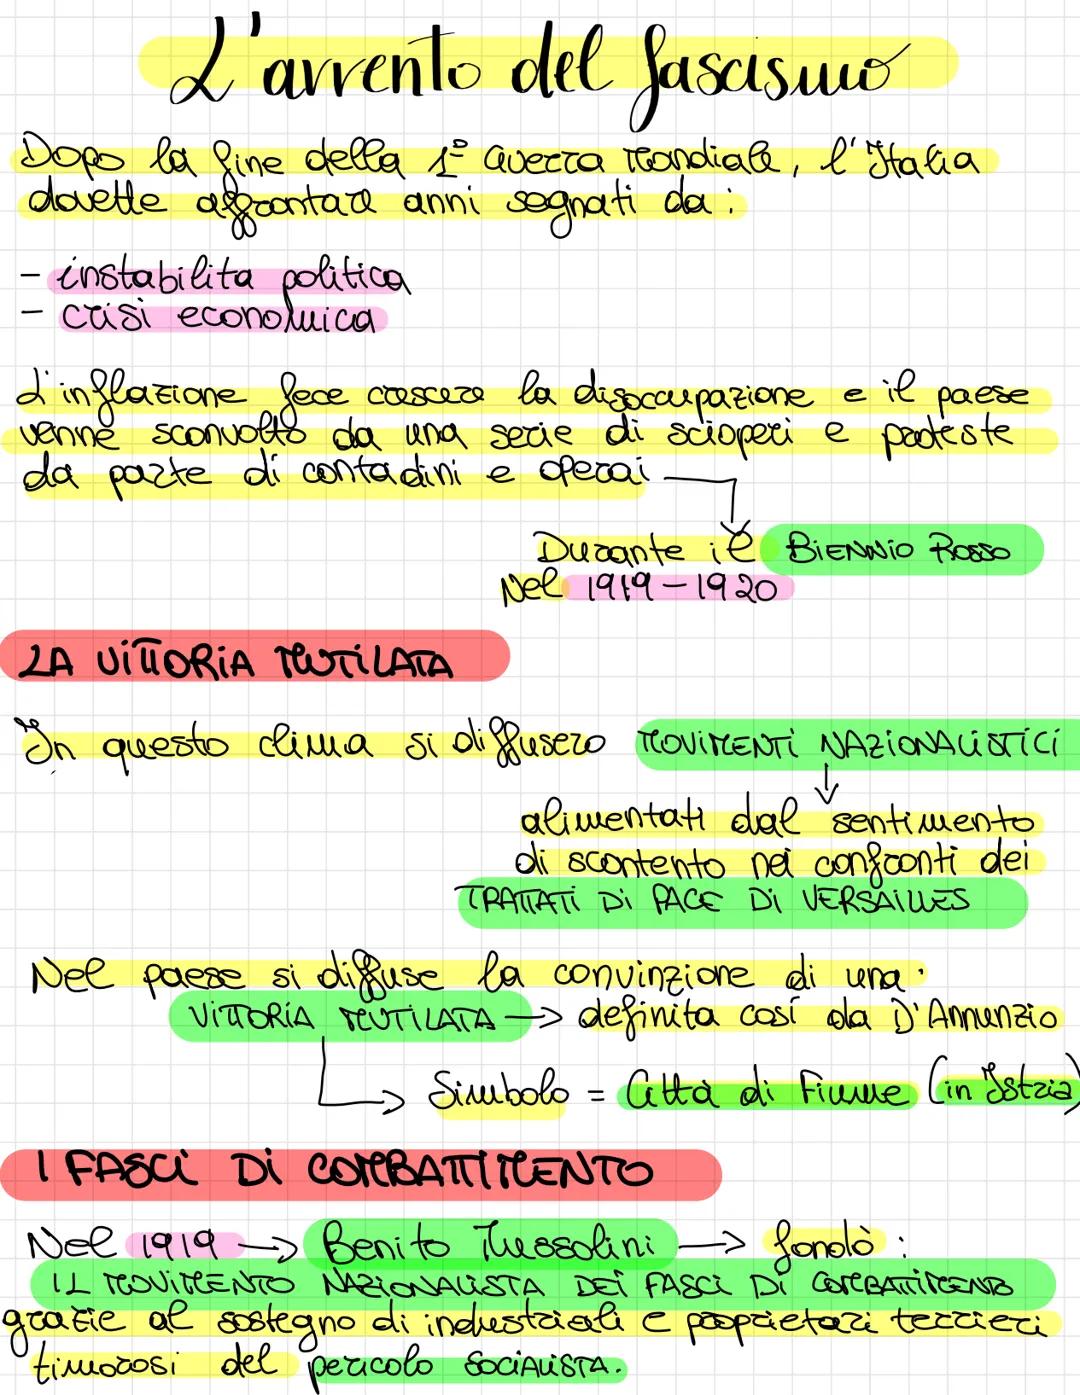 L'avvento del fascismo
Dopo la fine della 1ª Guerra Mondiale, l'Italia
dovette affrontare anni segnati da :
- instabilita politica
- crisi economica
L'inflazione fece crescere la disoccupazione e il paese
venne sconvolto da una serie di scioperi e proteste
da parte di contadini e operai
Durante il BIENNIO ROSSO
Nel 1919-1920
LA VITTORIA MUTILATA
In questo clima si diffusero MOVIMENTI NAZIONALISTICI
alimentati dal sentimento
di scontento nei confronti dei
TRATTATI DI PACE DI VERSAILLES
Nel paese si diffuse la convinzione di una :
VITTORIA MUTILATA → definita così da D'Annunzio
Simbolo = Città di Fiume (in Istria)
I FASCI DI COMBATTIMENTO
Nel 1919 → Benito Mussolini → fondò :
IL MOVIMENTO NAZIONALISTA DEI FASCI DI COMBATTIMENTO
grazie al sostegno di industriali e proprietari terrieri
timorosi del pericolo SOCIALISTA.